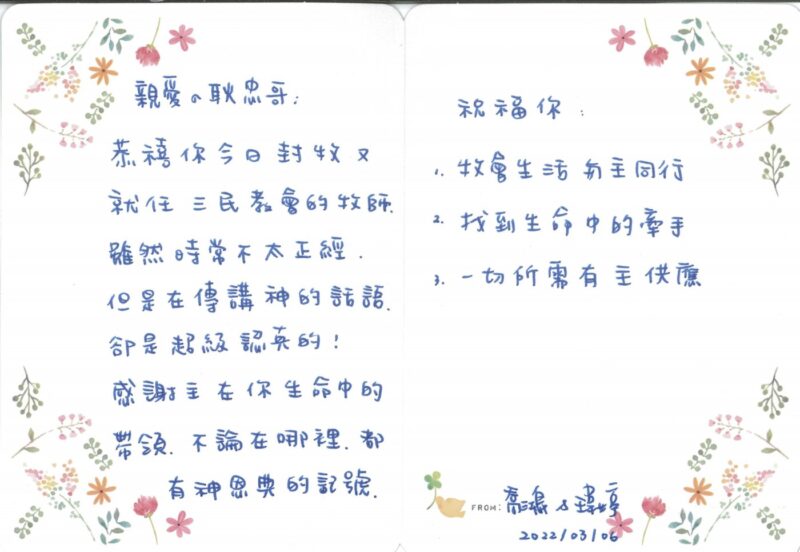 親愛の耿忠哥:
恭禧你今日封牧又
就任三民教會的牧師.
雖然時常不太正經.
但是在傳講神的話語.
卻是超級認真的!
感謝主在你生命中的
帶領.不論在哪裡.都
有神恩典的記號.
祝福你:
1. 牧會生活與主同行
2. 找到生命中的牽手
3. 一切所需有主供應
FROM: &
2022/03/06